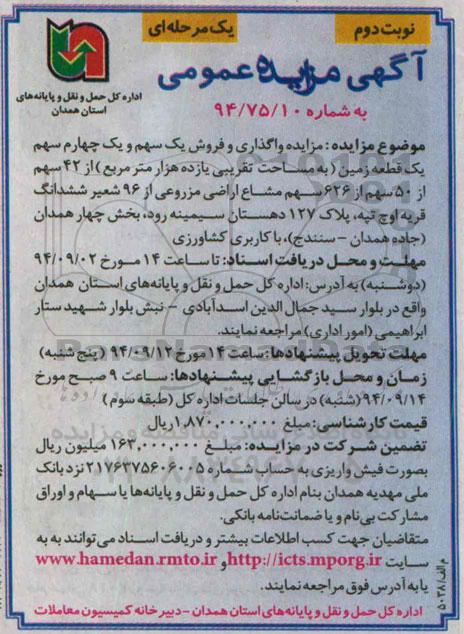 نوبت دوم
یک مرحله‌ای
آگهی مزایده عمومی
به شماره ۹۴/۷۵/۱۰
اداره کل حمل و نقل و پایانه‌های
استان همدان
موضوع مزایده: مزایده واگذاری و فروش یک سهم و یک چهارم سهم
یک قطعه زمین (به مساحت تقریبی یازده هزار متر مربع) از ۴۲ سهم
از ۵۰ سهم از ۶۲۶ سهم مشاع اراضی مزروعی از ۹۶ شعیر ششدانگ
قریه اوچ تپه، پلاک ۱۲۷ دهستان سیمینه رود، بخش چهار همدان
(جاده همدان – سنندج)، با کاربری کشاورزی
مهلت و محل دریافت اسناد: تا ساعت ۱۴ مورخ ۹۴/۰۹/۰۲
(دوشنبه) به آدرس: اداره کل حمل و نقل و پایانه‌های استان همدان
واقع در بلوار سید جمال الدین اسدآبادی – نبش بلوار شهید ستار
ابراهیمی (امور اداری) مراجعه نمایند.
مهلت تحویل پیشنهادها: ساعت ۱۴ مورخ ۹۴/۰۹/۱۲ (پنج شنبه)
زمان و محل بازگشایی پیشنهادها: ساعت ۹ صبح مورخ
۹۴/۰۹/۱۴ (شنبه) در سالن جلسات اداره کل (طبقه سوم)
قیمت کارشناسی: مبلغ ۱,۸۷۰,۰۰۰,۰۰۰ ریال
تضمین شرکت در مزایده: مبلغ ۱۶۳,۰۰۰,۰۰۰ میلیون ریال
بصورت فیش واریزی به حساب شماره ۲۱۷۶۳۷۵۶۰۶۰۰۵ نزد بانک
ملی مهدیه همدان بنام اداره کل حمل و نقل و پایانه‌ها یا سهام و اوراق
مشارکت بی‌نام و یا ضمانت‌نامه بانکی.
متقاضیان جهت کسب اطلاعات بیشتر و دریافت اسناد می‌توانند به به
سایت http://icts.mporg.ir و www.hamedan.rmto.ir
یا به آدرس فوق مراجعه نمایند.
اداره کل حمل و نقل و پایانه‌های استان همدان – دبیرخانه کمیسیون معاملات
م الف/۵۰۳۸